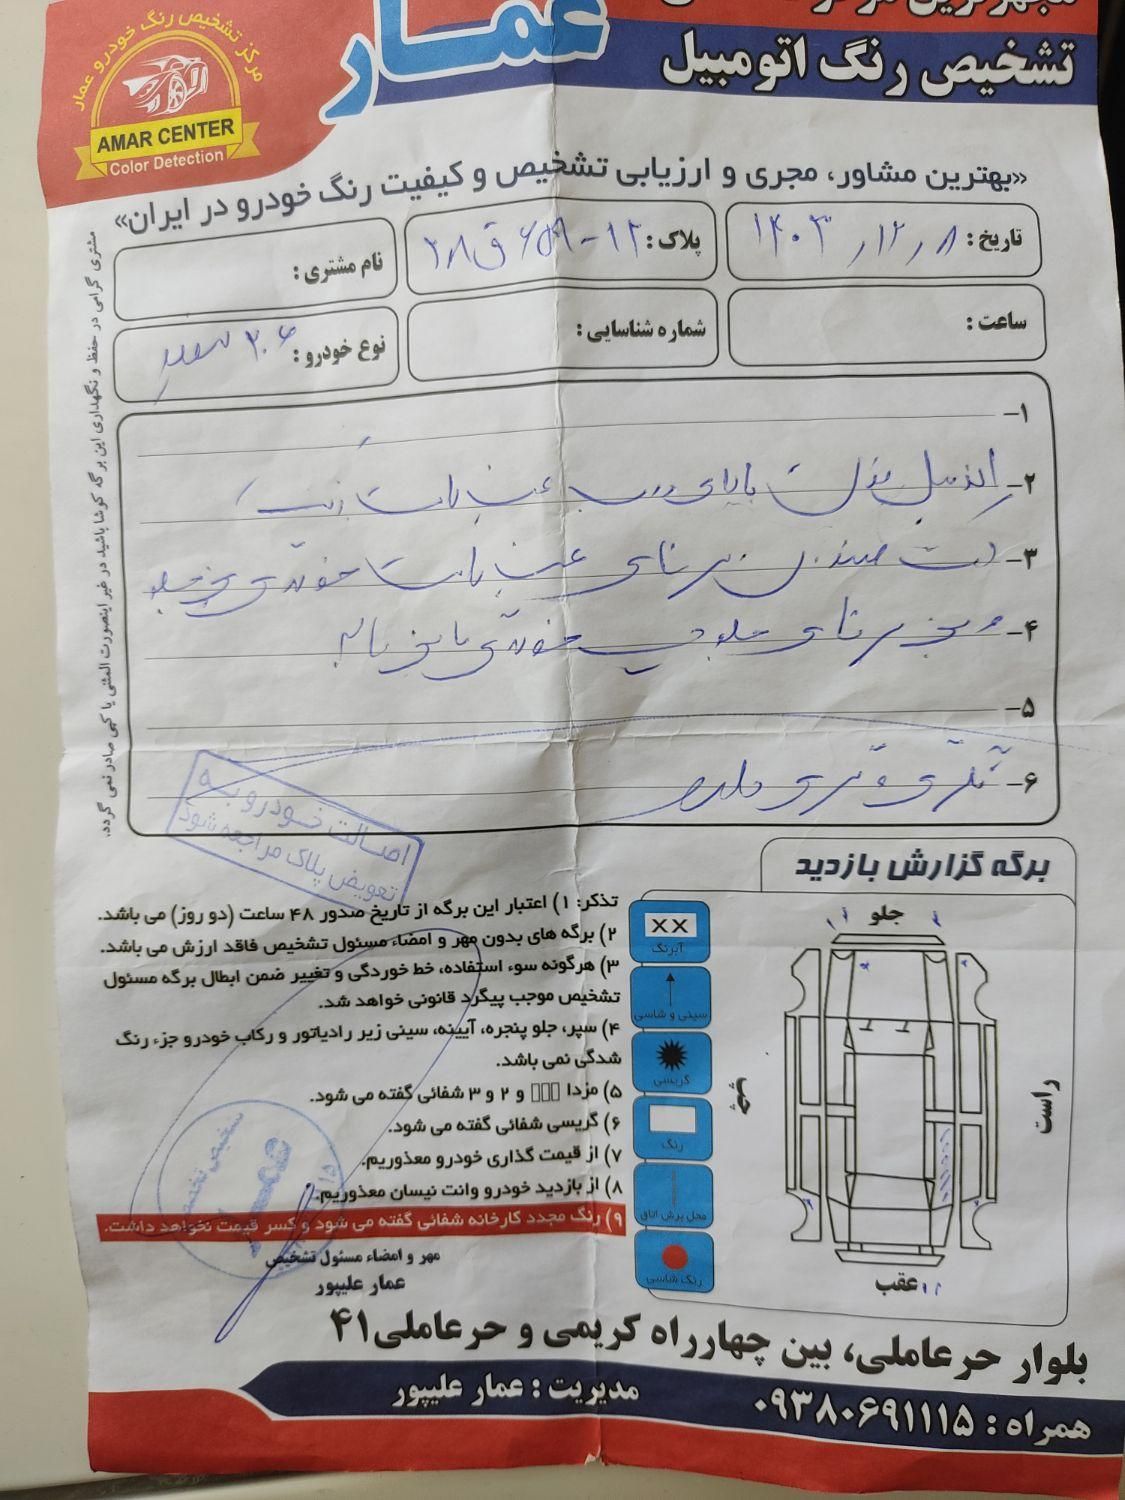 عمار
تشخیص رنگ اتومبیل
مرکز تشخیص رنگ خودرو عمار
AMAR CENTER
Color Detection
«بهترین مشاور، مجری و ارزیابی تشخیص و کیفیت رنگ خودرو در ایران»
تاریخ: ۱۴۰۳/۱۲/۸
پلاک: ۱۲-۶۵۹ ق ۲۸
نام مشتری:
ساعت:
شماره شناسایی:
نوع خودرو: ۲۰۶ سفید
مشتری گرامی در حفظ و نگهداری این برگه کوشا باشید در غیر اینصورت المثنی یا کپی صادر نمی گردد.
۱-
۲- بالای درب عقب راست
۳- عقب راست خوردگی
۴- خوردگی
۵-
۶-
اصالت خودرو به
تعویض پلاک مراجعه شود
برگه گزارش بازدید
تذکر: ۱) اعتبار این برگه از تاریخ صدور ۴۸ ساعت (دو روز) می باشد.
۲) برگه های بدون مهر و امضاء مسئول تشخیص فاقد ارزش می باشد.
۳) هرگونه سوء استفاده، خط خوردگی و تغییر ضمن ابطال برگه مسئول
تشخیص موجب پیگرد قانونی خواهد شد.
۴) سپر، جلو پنجره، آیینه، سینی زیر رادیاتور و رکاب خودرو جزء رنگ
شدگی نمی باشد.
۵) مزدا □□□ و ۲ و ۳ شفائی گفته می شود.
۶) گریسی شفائی گفته می شود.
۷) از قیمت گذاری خودرو معذوریم.
۸) از بازدید خودرو وانت نیسان معذوریم.
۹) رنگ مجدد کارخانه شفائی گفته می شود و کسر قیمت نخواهد داشت.
مهر و امضاء مسئول تشخیص
عمار علیپور
XX
آبرنگ
سینی و شاسی
گریسی
رنگ
محل برش اتاق
رنگ شاسی
جلو
چپ
راست
عقب
بلوار حرعاملی، بین چهارراه کریمی و حرعاملی۴۱
مدیریت: عمار علیپور
همراه: ۰۹۳۸۰۶۹۱۱۱۵